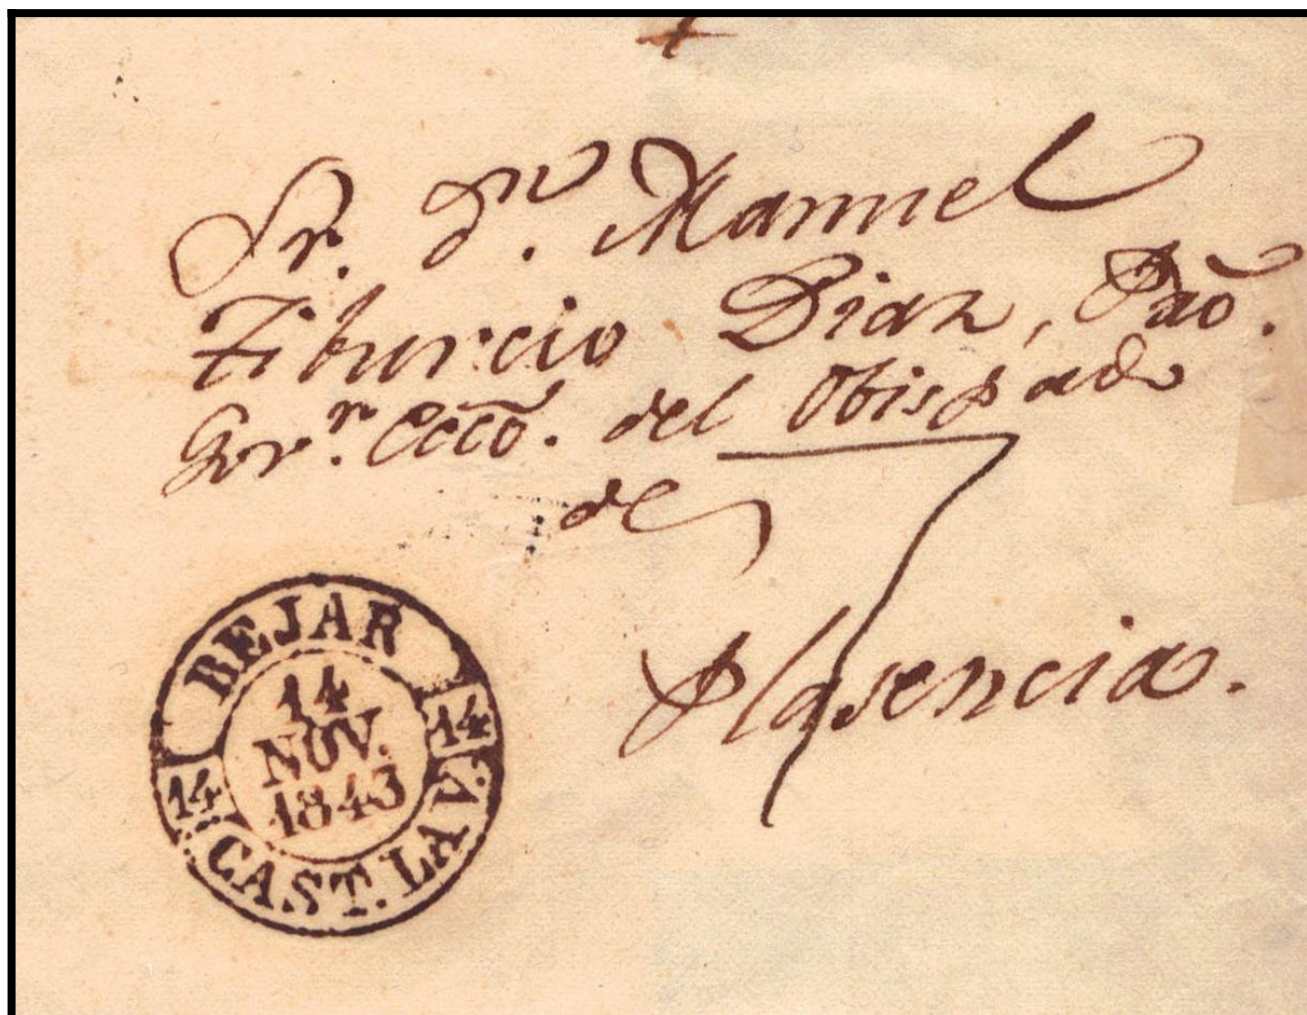 Sr. Dn. Manuel
Tiburcio Diaz, Pbō.
Govr. Eccō. del Obispado
de
Plasencia.
BEJAR
14
NOV.
1843
14
14
CAST. LA V.